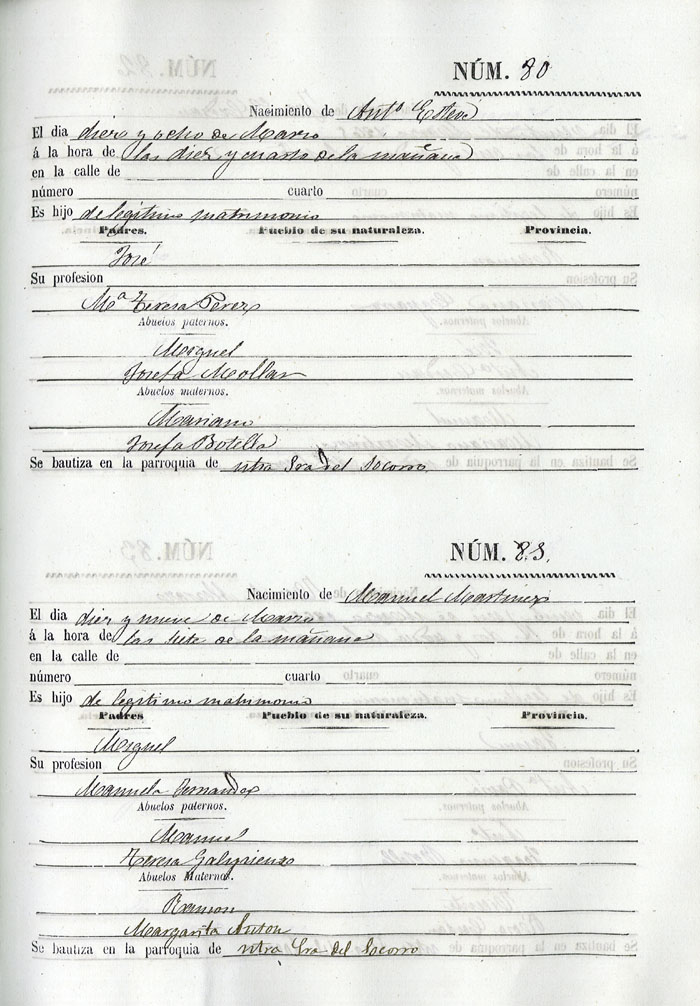 NÚM. 80
Nacimiento de Antº Esteve
El dia diez y ocho de Marzo
á la hora de las diez y cuarto de la mañana
en la calle de
número cuarto
Es hijo de legitimo matrimonio
Padres. Pueblo de su naturaleza. Provincia.
José
Su profesion
Mª Teresa Perez
Abuelos paternos.
Miguel
Josefa Mollar
Abuelos maternos.
Mariano
Josefa Botella
Se bautiza en la parroquia de ntra Sra del Socorro
NÚM. 83.
Nacimiento de Manuel Martinez
El dia diez y nueve de Marzo
á la hora de las siete de la mañana
en la calle de
número cuarto
Es hijo de legitimo matrimonio
Padres Pueblo de su naturaleza. Provincia.
Miguel
Su profesion
Manuela Fernandez
Abuelos paternos.
Manuel
Teresa
Abuelos Maternos.
Ramon
Margarita Anton
Se bautiza en la parroquia de ntra Sra del Socorro